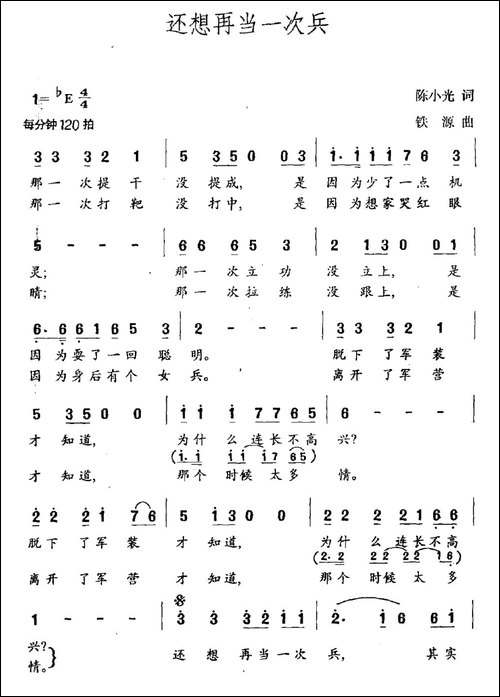 还想再当一次兵
1=♭E 4/4
陈小光 词
每分钟120拍
铁 源 曲
3 3 3 2 1 | 5 3 5 0 0 3 | 1· 1 1 1 7 6 3 |
那一次提干 没提成, 是 因为少了一点 机
那一次打靶 没打中, 是 因为想家哭红 眼
5 - - - | 6 6 6 5 3 | 2 1 3 0 0 1 |
灵; 那一次立功 没立上, 是
睛; 那一次拉练 没跟上, 是
6· 6 6 1 6 5 3 | 2 - - - | 3 3 3 2 1 |
因为耍了一回 聪 明。 脱下了军装
因为身后有个 女 兵。 离开了军营
5 3 5 0 0 | 1 1 1 7 7 6 5 | 6 - - - |
才知道, 为什么连长不高 兴?
(1· 1 1 1 1 7 6 5)
才知道, 那个时候太多 情。
2 2 2 1 7 6 | 5 1 3 0 0 | 2 2 2 2 1 6 6 |
脱下了军装 才知道, 为什么连长不高
(2· 2 2 2 2 1 6)
离开了军营 才知道, 那个时候太多
1 - - - | 3 3 3 2 1 1 | 2· 1 6 6 1 |
兴? 还想再当一次 兵, 其实
情。